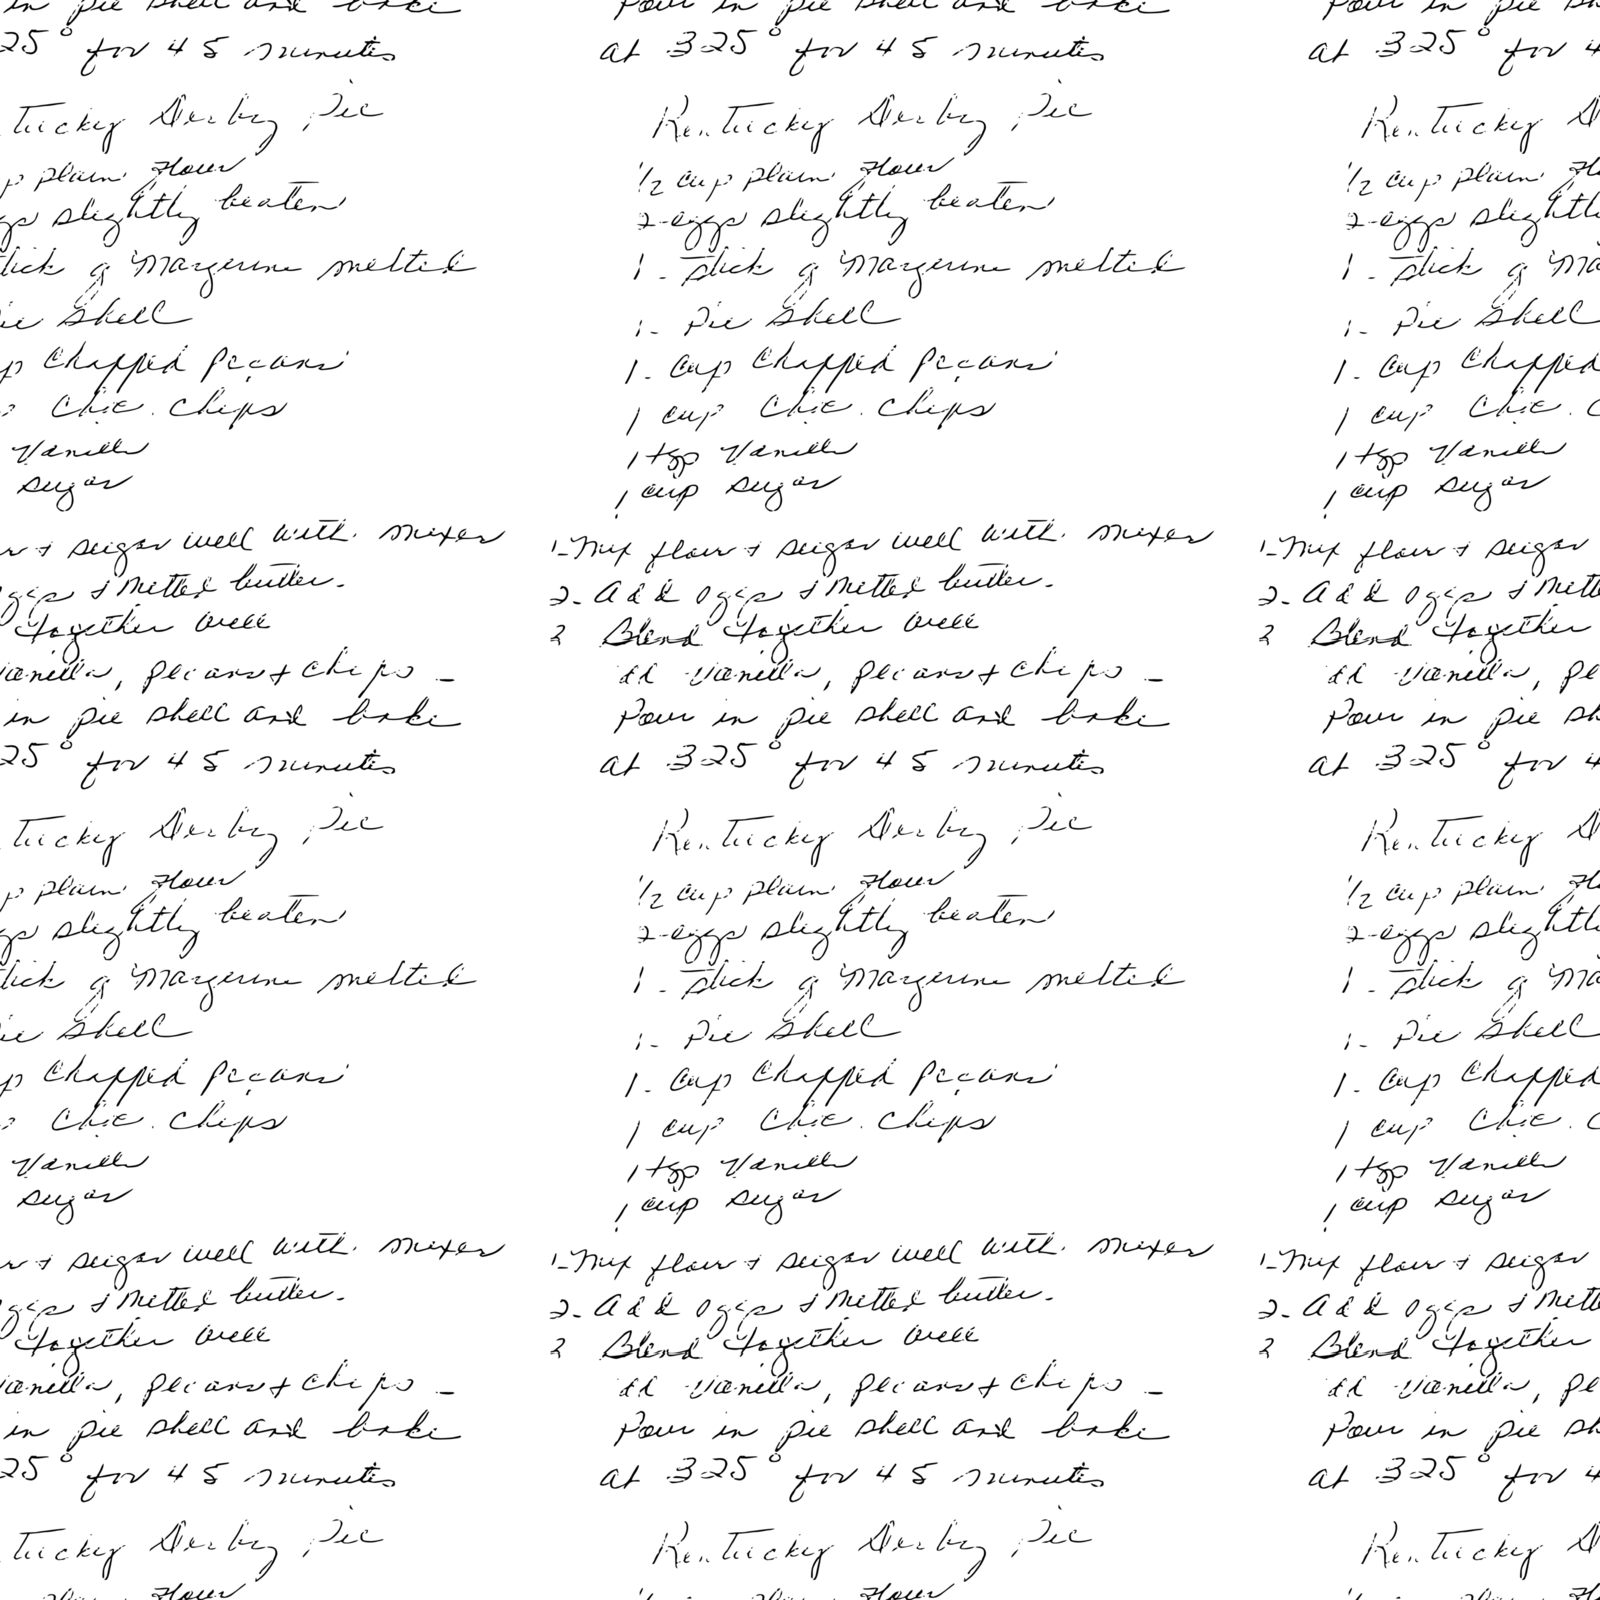 in pie shell and bake
25° for 45 minutes
tucky Derby Pie
p plain flour
gs slightly beaten
tick of Margerine melted
ie Shell
p Chopped Pecans
Choc. Chips
Vanilla
sugar
r + sugar well with mixer
ggs + melted butter.
together well
vanilla, pecans + chips
in pie shell and bake
25° for 45 minutes
tucky Derby Pie
p plain flour
gs slightly beaten
tick of Margerine melted
ie Shell
p Chopped Pecans
Choc. Chips
Vanilla
sugar
r + sugar well with mixer
ggs + melted butter.
together well
vanilla, pecans + chips
in pie shell and bake
25° for 45 minutes
tucky Derby Pie
plain flour
Pour in pie shell and bake
at 325° for 45 minutes
Kentucky Derby Pie
1/2 cup plain flour
2-eggs slightly beaten
1. stick of Margerine melted
1- Pie Shell
1. Cup Chopped Pecans
1 cup Choc. Chips
1 tsp Vanilla
1 cup sugar
1-Mix flour + sugar well with mixer
2. Add eggs + melted butter.
2 Blend together well
dd vanilla, pecans + chips
Pour in pie shell and bake
at 325° for 45 minutes
Kentucky Derby Pie
1/2 cup plain flour
2-eggs slightly beaten
1. stick of Margerine melted
1- Pie Shell
1. Cup Chopped Pecans
1 cup Choc. Chips
1 tsp Vanilla
1 cup sugar
1-Mix flour + sugar well with mixer
2. Add eggs + melted butter.
2 Blend together well
dd vanilla, pecans + chips
Pour in pie shell and bake
at 325° for 45 minutes
Kentucky Derby Pie
plain flour
Pour in pie sh
at 325° for 4
Kentucky D
1/2 cup plain flo
2-eggs slightl
1. stick of Ma
1- Pie Shell
1. Cup Chopped
1 cup Choc. C
1 tsp Vanilla
1 cup sugar
1-Mix flour + sugar
2. Add eggs + melt
2 Blend together
dd vanilla, pe
Pour in pie sh
at 325° for 4
Kentucky D
1/2 cup plain flo
2-eggs slightl
1. stick of Ma
1- Pie Shell
1. Cup Chopped
1 cup Choc. C
1 tsp Vanilla
1 cup sugar
1-Mix flour + sugar
2. Add eggs + melt
2 Blend together
dd vanilla, pe
Pour in pie sh
at 325° for 4
Kentucky D